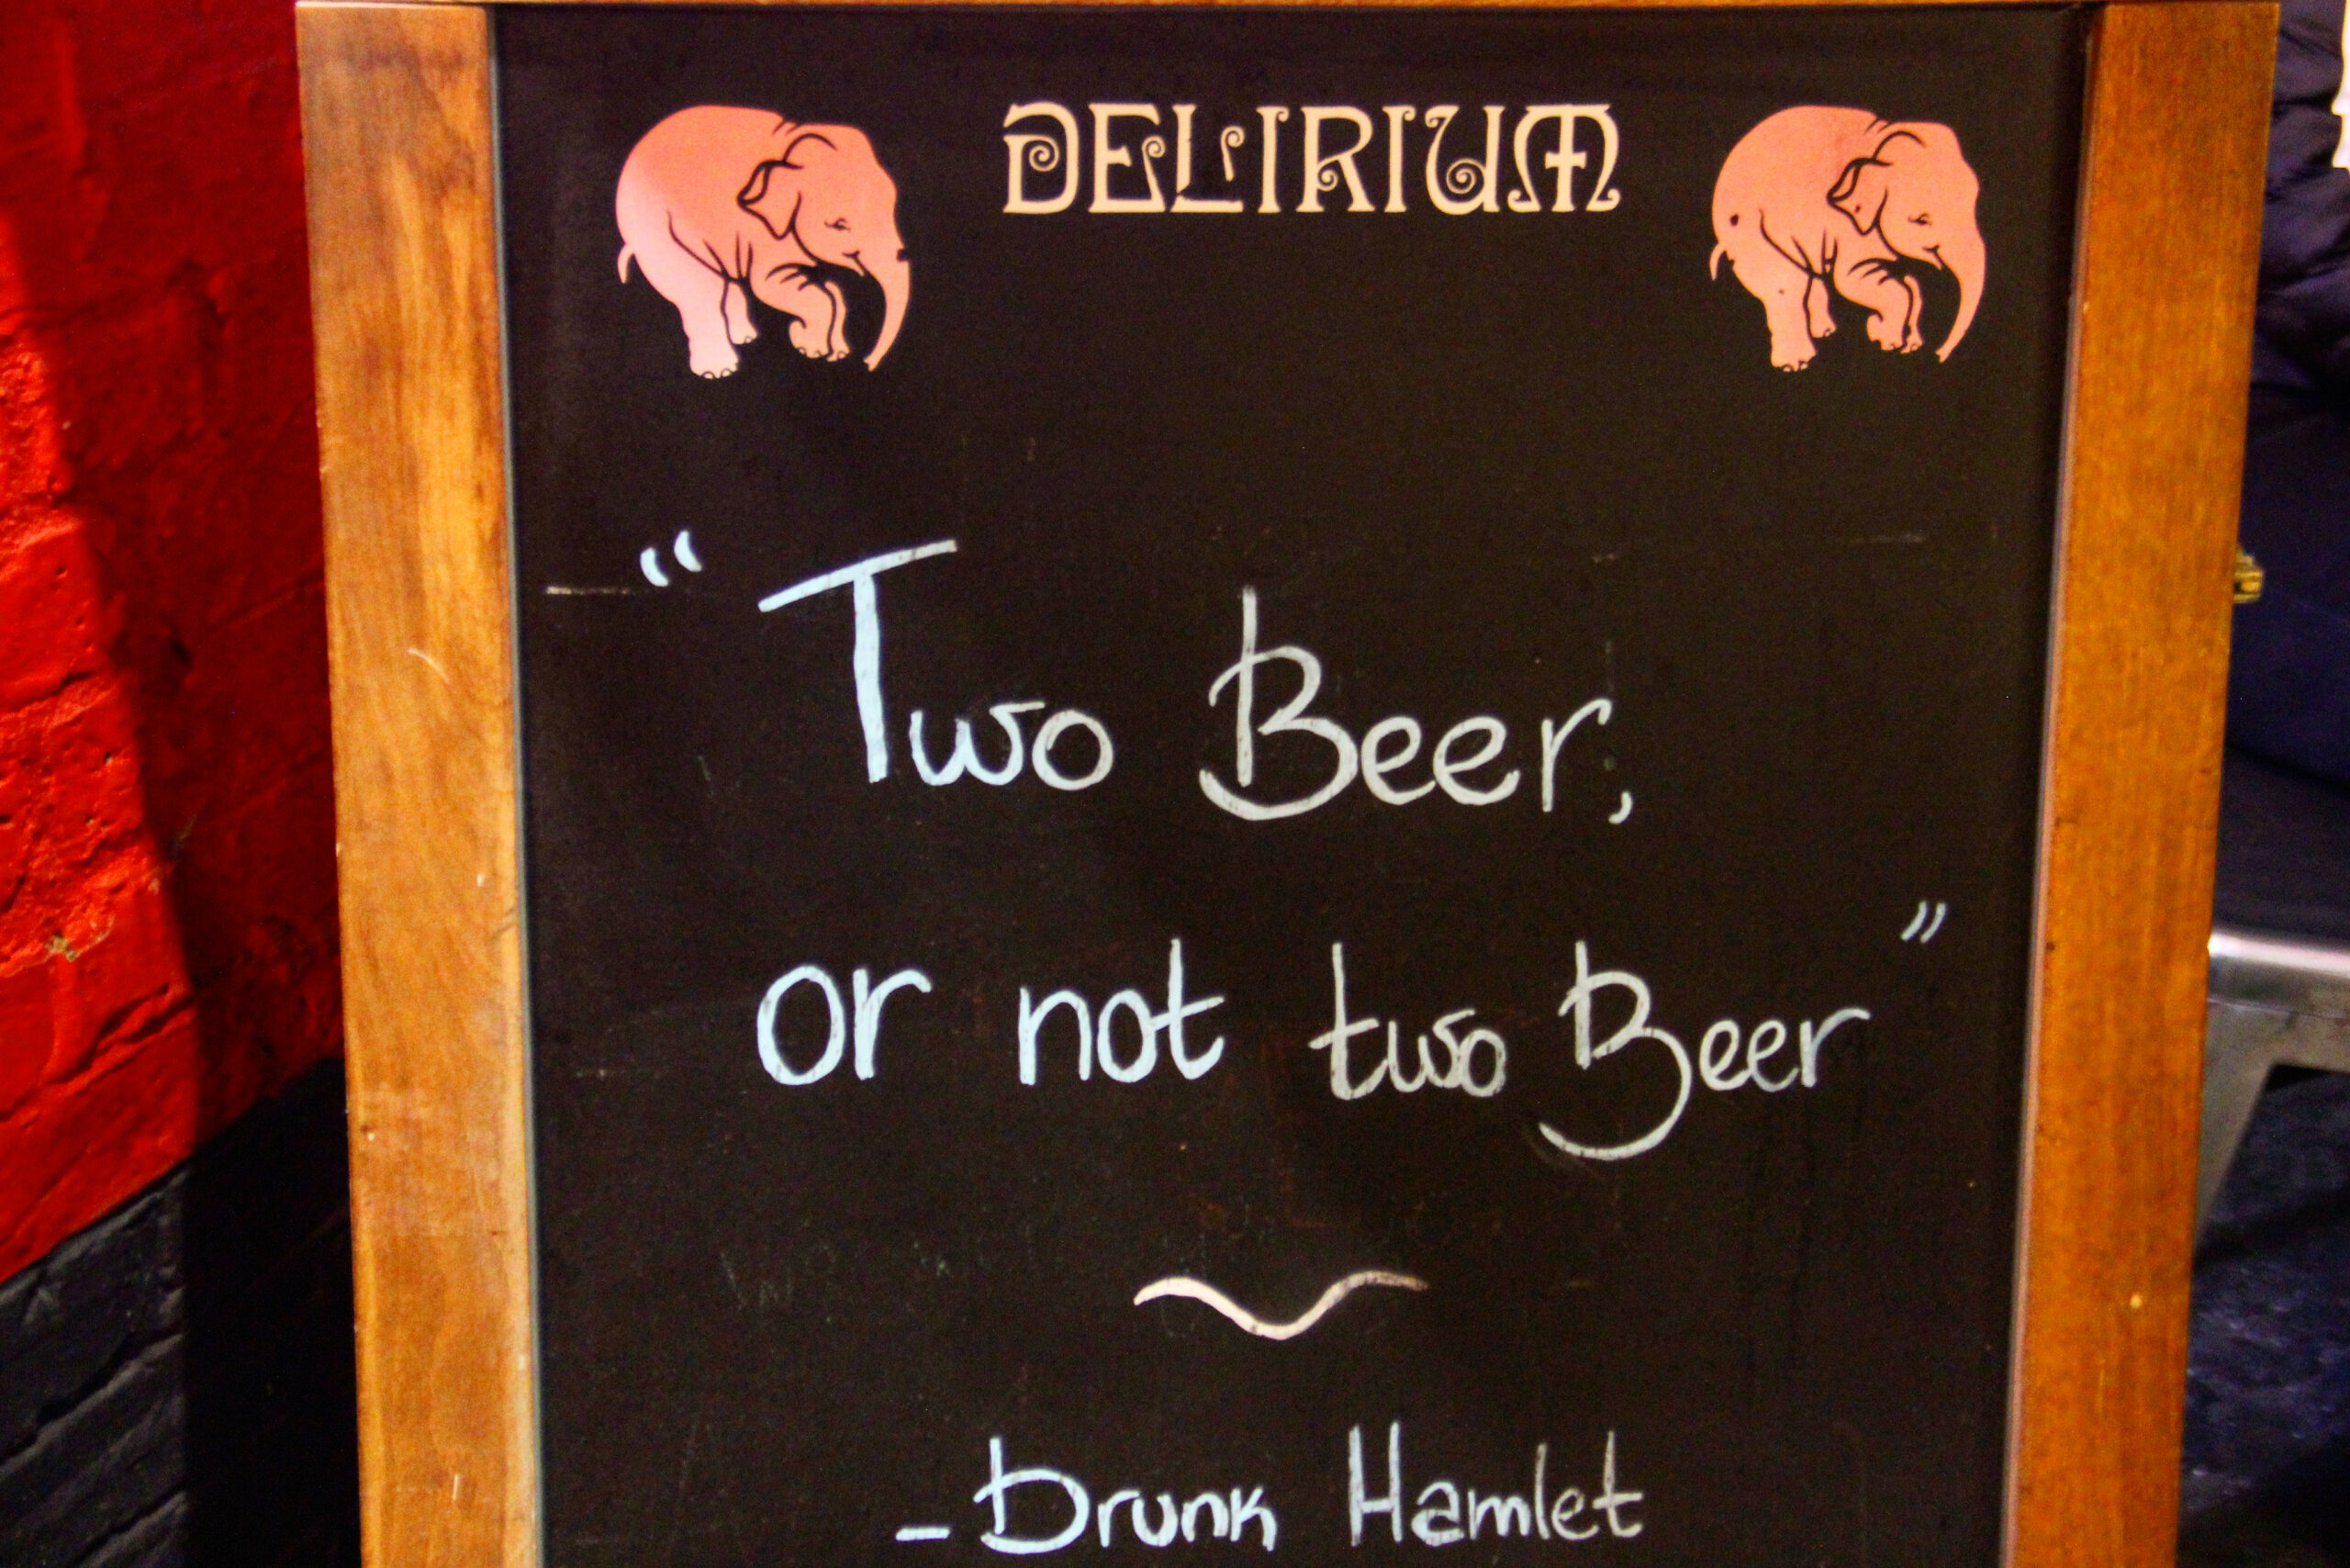 DELIRIUM
“Two Beer,
or not two Beer”
- Drunk Hamlet